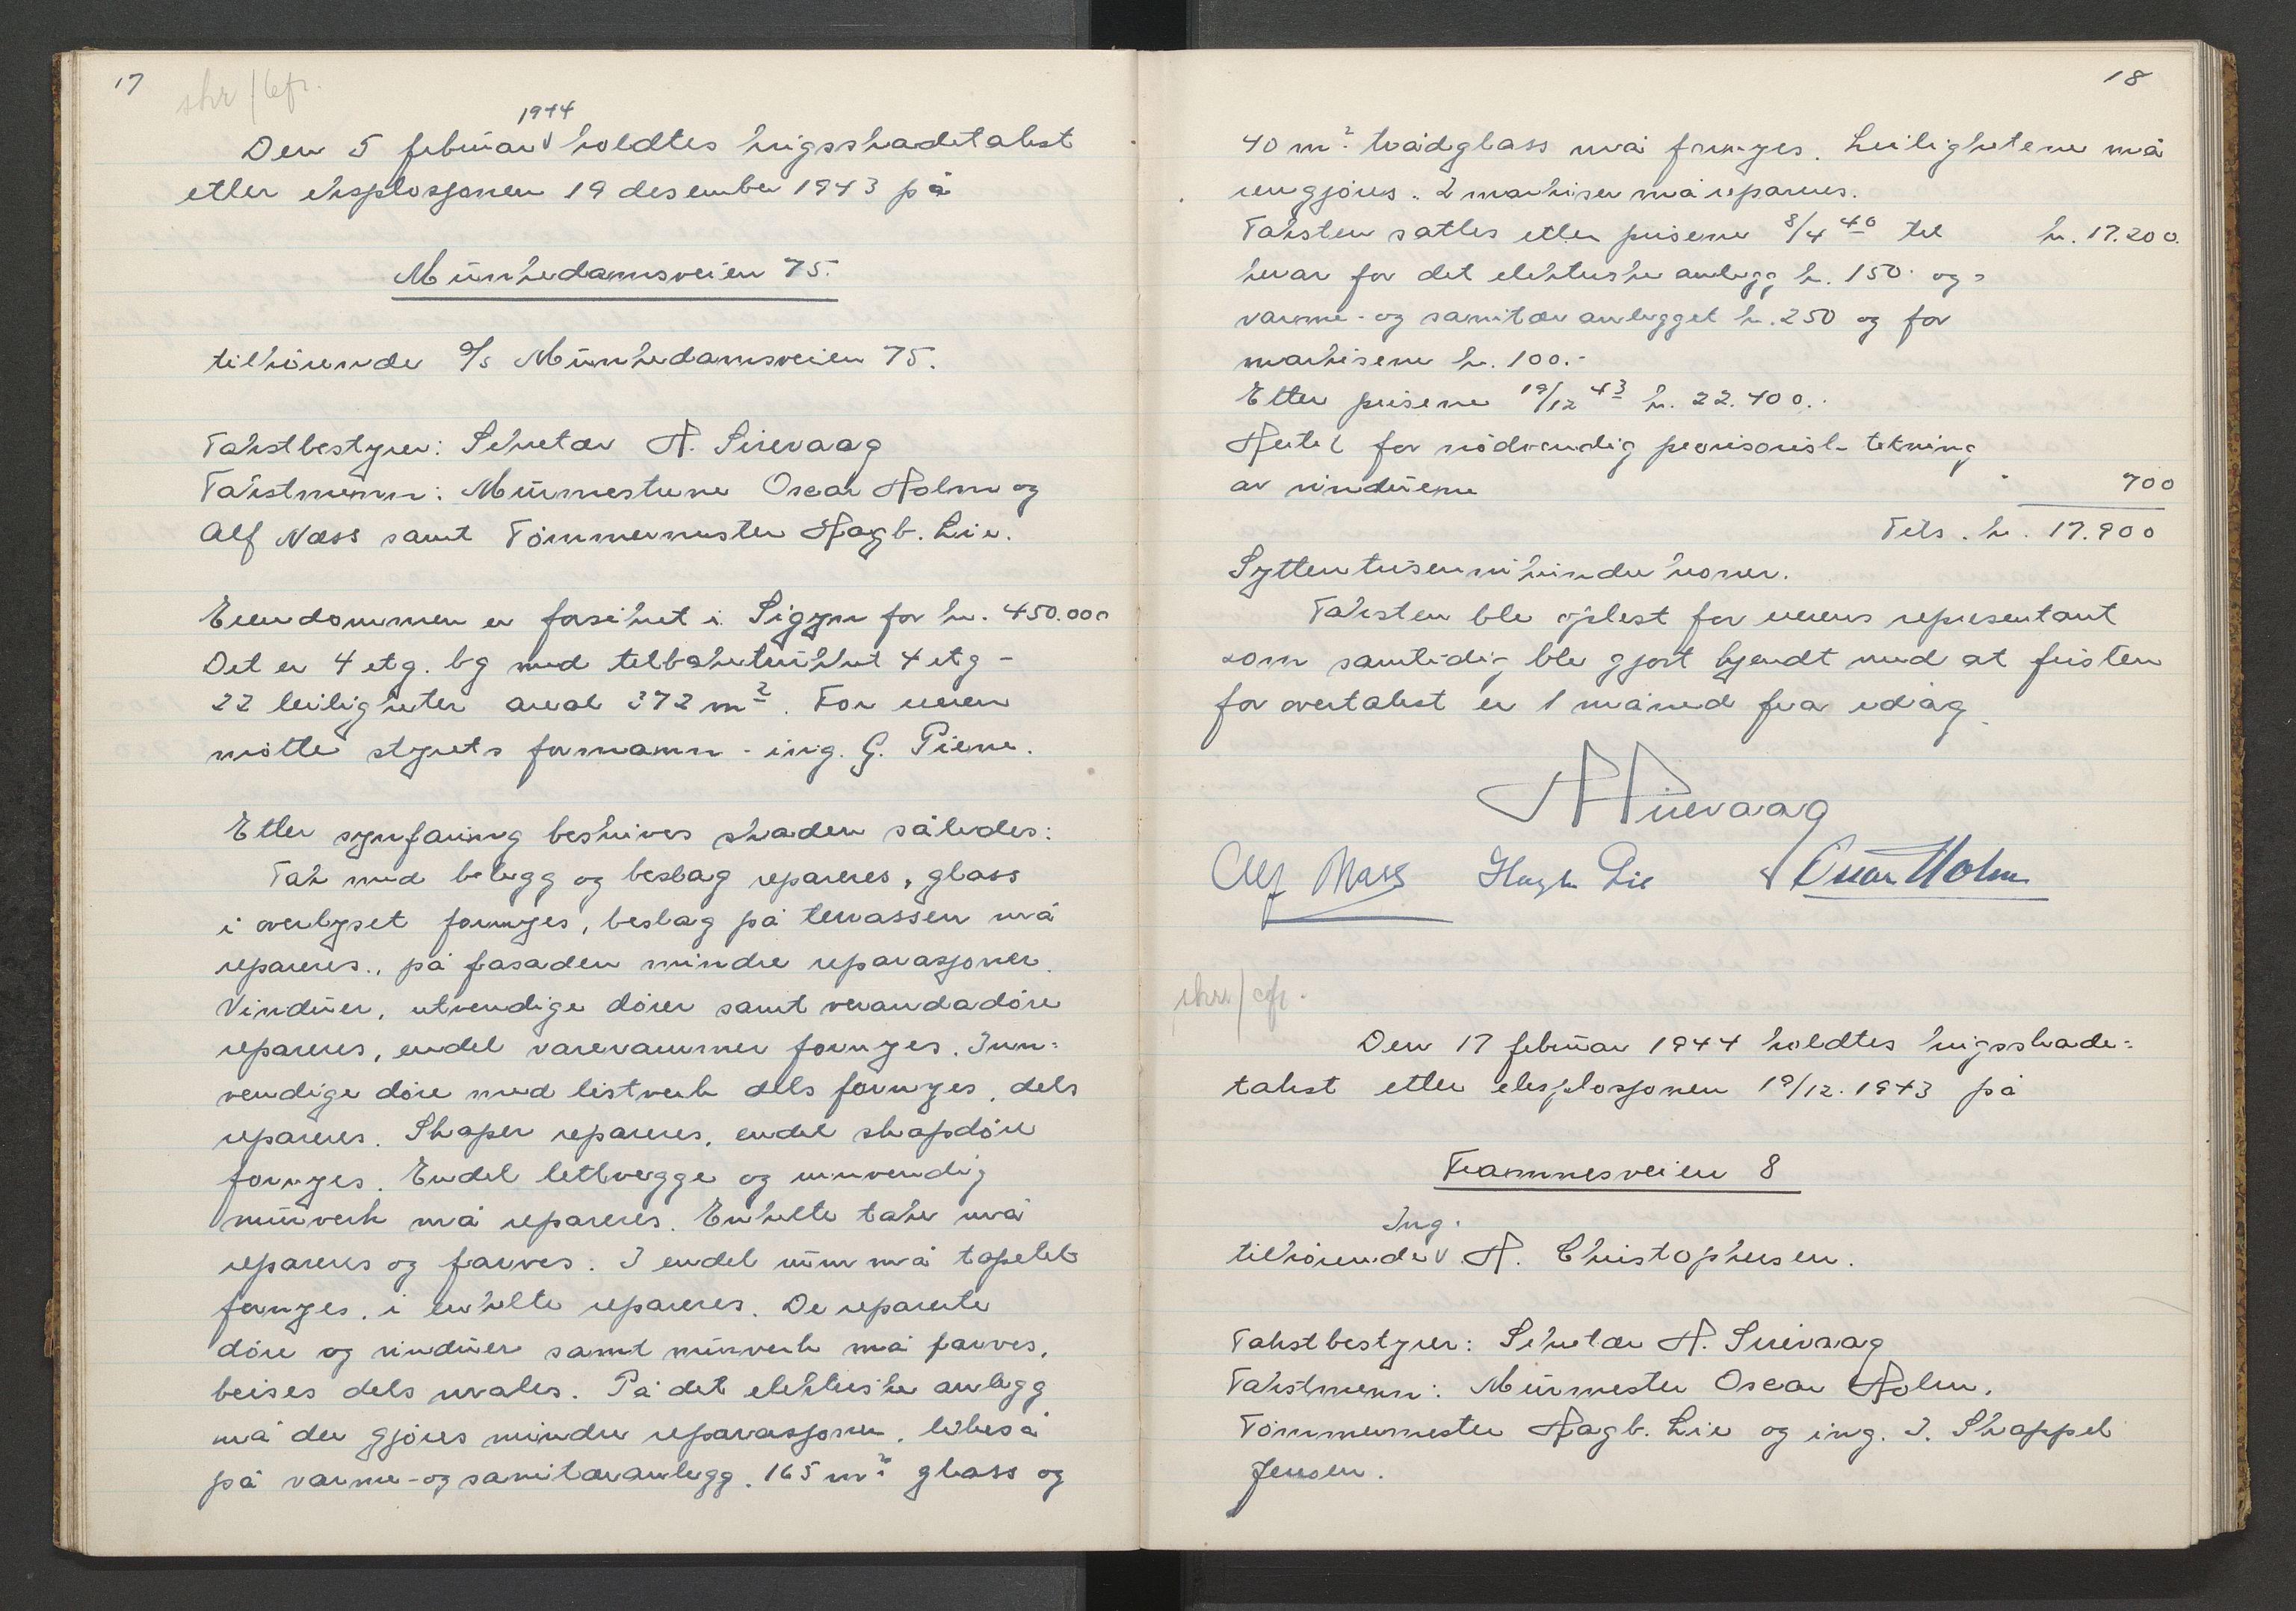 17
skr/
1944
Den 5 februar v holdtes krigsskadetakst
etter eksplosjonen 19 desember 1943 på
Munkedamsveien 75.
tilhörende A/s Munkedamsveien 75.
Takstbestyrer: Sekretær H. Sirevaag
Takstmenn: Murmestrene Oscar Holm og
Alf Næss samt Tömmermester Hagb. Lie.
Eiendommen er forsikret i Sigyn for kr. 450.000
Det er 4 etg. bg med tilbaketrukket 4 etg -
22 leiligheter areal 372 m². For eieren
mötte styrets formann - ing. G. Piene.
Etter synfaring beskrives skaden således:
Tak med belegg og beslag repareres, glass
i overlyset fornyes, beslag på terrassen må
repareres., på fasaden mindre reparasjoner.
Vinduer, utvendige dörer samt verandadöre
repareres, endel varevarmer fornyes. Inn-
vendige döre med listverk dels fornyes, dels
repareres. Skaper repareres, endel skapdöre
fornyes. Endel lettvegge og innvendig
murverk må repareres. Enkelte take må
repareres og farves. I endel rum må tapetet
fornyes, i enkelte repareres. De reparerte
döre og vinduer samt murverk må farves,
beises dels males. På det elektriske anlegg
må der gjöres mindre reparasjoner, likeså
på varme- og sanitæranlegg. 165 m² glass og
18
40 m² trådglass må fornyes. Leilighetene må
rengjöres. 2 markiser må repareres.
Taksten sattes etter prisene 8/4 40 til kr. 17.200.
herav for det elektriske anlegg kr. 150 og
varme- og sanitæranlegget kr. 250 og for
markisene kr. 100.-
Etter prisene 19/12 43 kr. 22.400.-
Hertil for nödvendig provisorisk tekning
av vinduene " 700
Tils. kr. 17.900
Syttentusennihundre kroner.
Taksten ble oplest for eierens representant
som samtidig ble gjort kjendt med at fristen
for overtakst er 1 måned fra idag.
H Sirevaag
Alf Næss Hagb Lie Oscar Holm
skr/
Den 17 februar 1944 holdtes krigsskade-
takst etter eksplosjonen 19/12.1943 på
Framnesveien 8
Ing.
tilhörende v H. Christophersen.
Takstbestyrer: Sekretær H. Sirevaag
Takstmenn: Murmester Oscar Holm,
Tömmermester Hagb. Lie og ing. I. Skappel
Jensen.